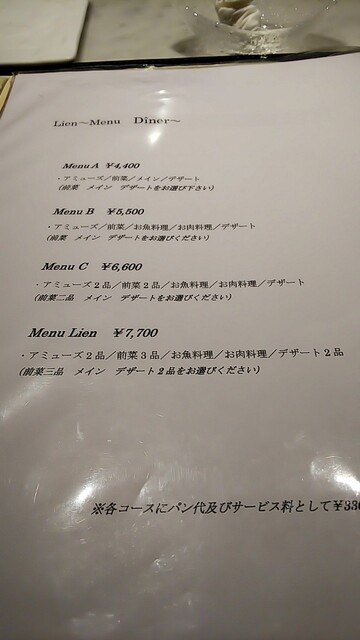 Lien～Menu Dîner～
Menu A ¥4,400
・アミューズ／前菜／メイン／デザート
(前菜 メイン デザートをお選び下さい)
Menu B ¥5,500
・アミューズ／前菜／お魚料理／お肉料理／デザート
(前菜 メイン デザートをお選びください)
Menu C ¥6,600
・アミューズ２品／前菜２品／お魚料理／お肉料理／デザート
(前菜二品 メイン デザートをお選びください)
Menu Lien ¥7,700
・アミューズ２品／前菜３品／お魚料理／お肉料理／デザート２品
(前菜三品 メイン デザート２品をお選びください)
※各コースにパン代及びサービス料として¥330